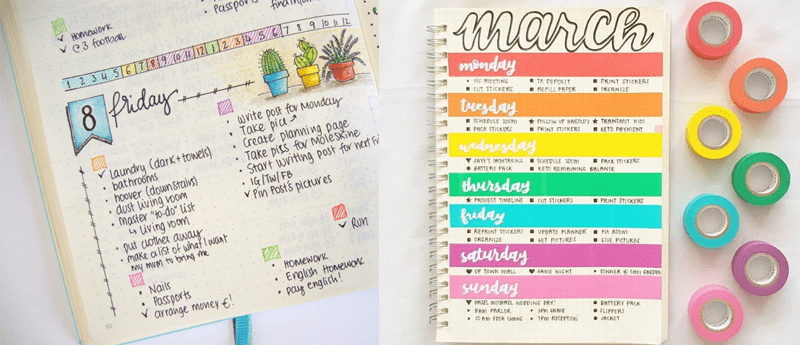 Passports
Homework
@ 3 football
1 2 3 4 5 6 7 8 9 10 11 12 1 2 3 4 5 6 7 8 9 10 11 12
8 friday
laundry (dark + towels)
bathrooms
hoover (downstairs)
dust living room
master "to-do" list
↳ living room
put clothes away
make a list of what I want
my mum to bring me
Nails
Passports
arrange money €!
Write post for Monday
Take pic
Create planning page
Take pics for Moleskine
Start writing post for next
IG/TW/FB
Pin Post's pictures
Run
Homework
English homework
pay english!
march
monday
NO MEETING TK DEPOSIT PRINT STICKERS
CUT STICKERS REFILL PAPER ORGANIZE
tuesday
SCHEDULE ZOOM FOLLOW UP TRANSMIT KIDS
PACK STICKERS PRINT STICKERS KETO PAYMENT
wednesday
SCHEDULE ZOOM PACK STICKERS
BATTERY PACK KETO REMAINING BALANCE
thursday
PROJECT TIMELINE CUT STICKERS PRINT STICKERS
friday
REPRINT STICKERS UPDATE PLANNER FIX ROOM
ORGANIZE GET PICTURES GIVE PICTURES
saturday
UP TOWN MALL GAME NIGHT DINNER @
sunday
HAZEL MICHAEL WEDDING DAY! BATTERY PACK
8AM PARLOR 3PM SLIPPERS
10 AM 7PM RECEPTION JACKET